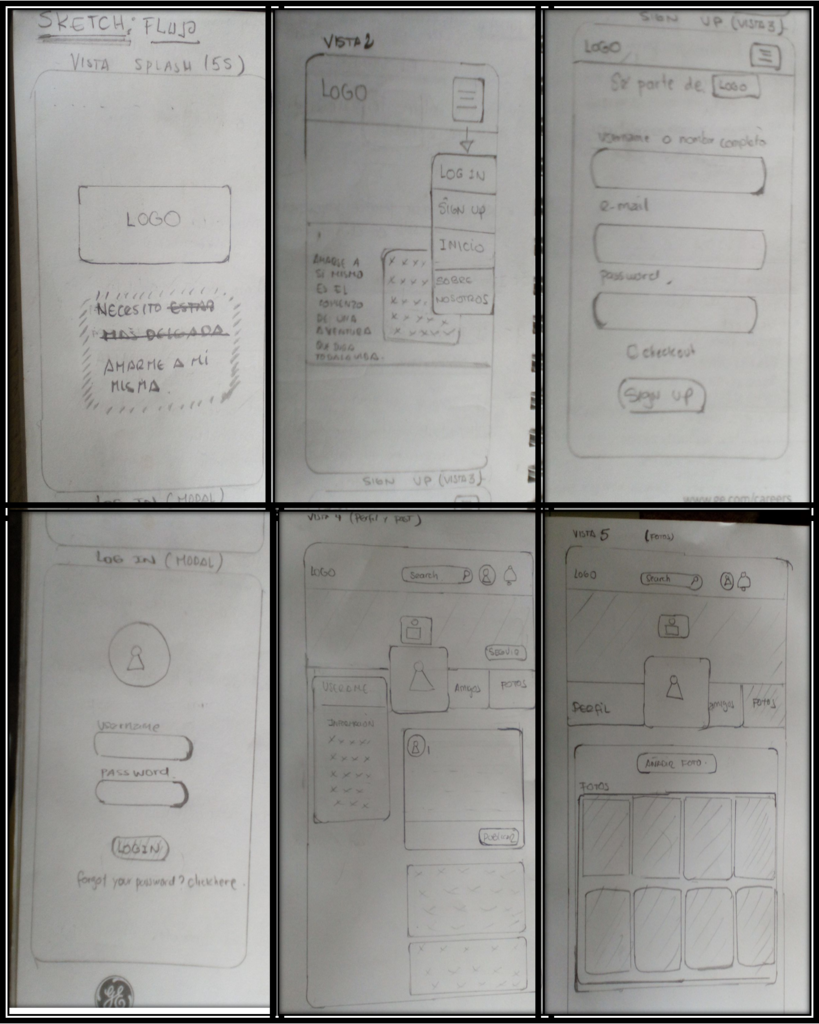 SKETCH: FLUJO
VISTA SPLASH (5S)
LOGO
NECESITO ESTAR
MAS DELGADA
AMARME A MI
MISMA.
LOG IN (MODAL)
VISTA 2
LOGO
LOG IN
SIGN UP
INICIO
SOBRE
NOSOTROS
AMARSE A
SI MISMO
ES EL
COMIENZO
DE UNA
AVENTURA
DE
TODA LA VIDA.
SIGN UP (VISTA 3)
SIGN UP (VISTA 3)
LOGO
Se parte de LOGO
Username o nombre completo
e-mail
password
checkout
Sign UP
www.ge.com/careers
LOG IN (MODAL)
Username
PASSWORD
LOGIN
forgot your password? click here.
GE
Vista 4 (Perfil y Post)
LOGO
Search
USERNAME
Amigos
FOTOS
INFORMACION
PUBLICAR
VISTA 5
LOGO
Search
PERFIL
Amigos
FOTOS
AÑADIR FOTO
FOTOS